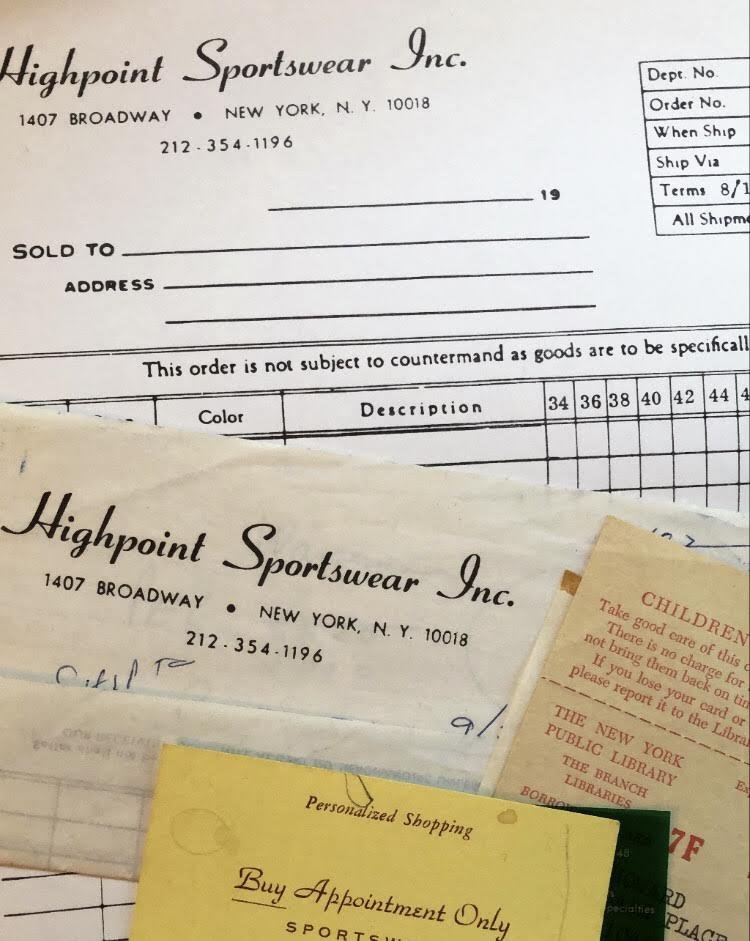 Highpoint Sportswear Inc.
1407 BROADWAY • NEW YORK, N. Y. 10018
212 - 354 - 1196
19
SOLD TO
ADDRESS
Dept. No.
Order No.
When Ship
Ship Via
Terms 8/1
All Shipm
This order is not subject to countermand as goods are to be specificall
Color Description 34 36 38 40 42 44 4
Highpoint Sportswear Inc.
1407 BROADWAY • NEW YORK, N. Y. 10018
212 - 354 - 1196
9/
CHILDREN
Take good care of this c
There is no charge for
not bring them back on tim
If you lose your card or
please report it to the Libra
THE NEW YORK
PUBLIC LIBRARY
THE BRANCH
LIBRARIES
Ex
BORRO
7F
48
RD
PLACE
pecialties
Personalized Shopping
Buy Appointment Only
SPORTSW